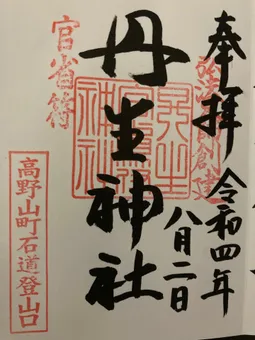 奉拝
創建
令和四年
八月二日
丹生神社
官省符
高野山町石道登山口